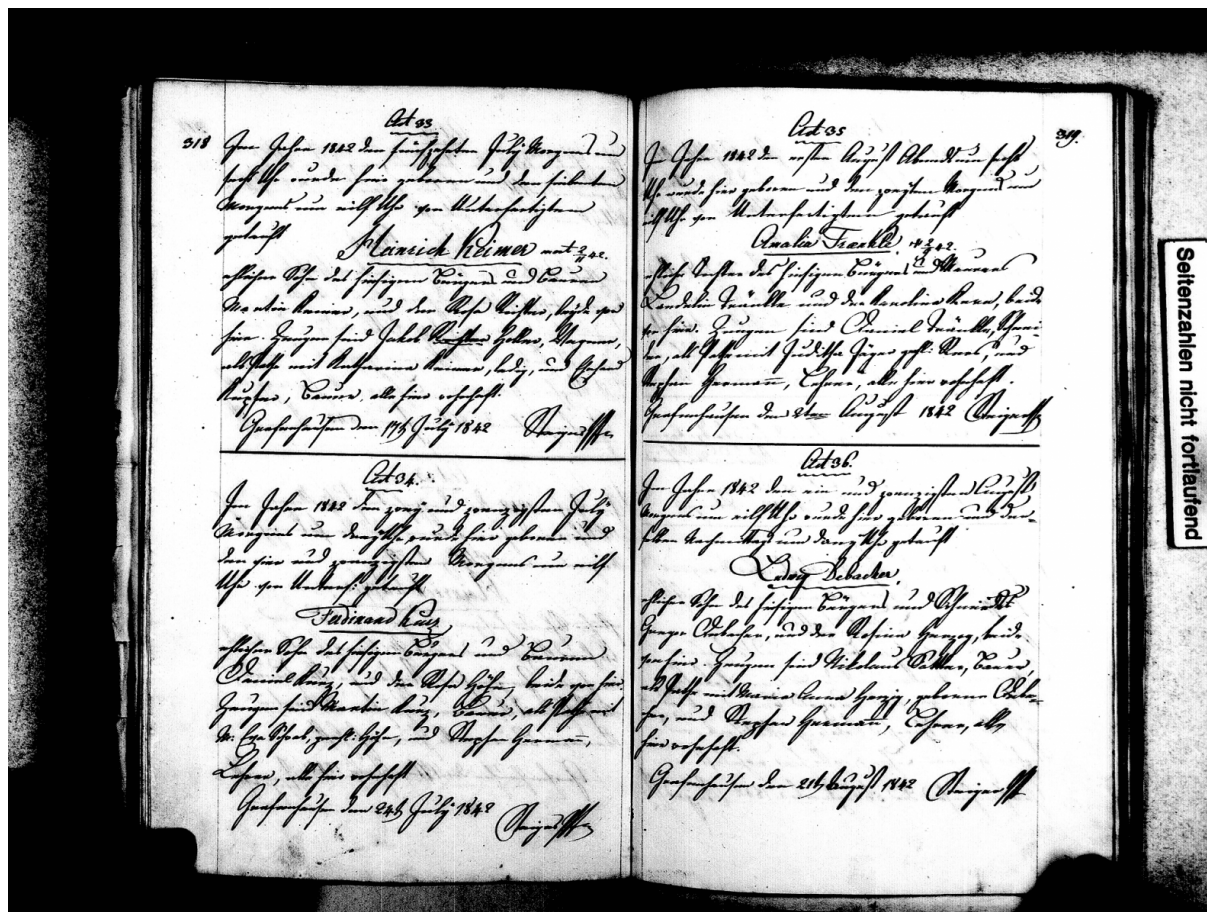 318
Act 33
Im Jahre 1842 den fünfzehnten July Morgens um
sechs Uhr wurde hier geboren und den siebenten
Morgens um eilf Uhr von Unterfertigtem
getauft
Heinrich Keimer
ehlicher Sohn des hiesigen Bürgers und Bauern
Martin Keimer, und der Rosa Richter, beide von
hier. Zeugen sind Jakob Wagner,
als Pathe mit Katharina Keimer, ledig, und
Kupfer, Bauer, alle hier wohnhaft.
Grafenhausen den 17t July 1842
Act 34.
Im Jahre 1842 den zwey und zwanzigsten July
Morgens um drey Uhr wurde hier geboren und
den vier und zwanzigsten Morgens um eilf
Uhr von Unterf. getauft
Ferdinand Kunz
ehlicher Sohn des hiesigen Bürgers und Bauern
Daniel Kunz, und der Rosa Höhn, beide von hier.
Zeugen sind Martin Kunz, Bauer, als Pathe mit
M. Eva Schwab, Höhn, und Stephan Hermann,
Lehrer, alle hier wohnhaft
Grafenhausen den 24t July 1842
319.
Act 35
Im Jahre 1842 den ersten August Abends um sechs
Uhr wurde hier geboren und den zweiten Morgens um
eilf Uhr von Unterfertigtem getauft
Amalia Fraenkle
ehliche Tochter des hiesigen Bürgers und Maurers
Landelin Fränkle und der Karolina beide
von hier. Zeugen sind Daniel Fränkle, Schnei-
der, als Pathe mit Juditha Jäger und
Stephan Hermann, Lehrer, alle hier wohnhaft.
Grafenhausen den 2ten August 1842
Act 36.
Im Jahre 1842 den ein und zwanzigsten August
Morgens um eilf Uhr wurde hier geboren und des-
selben Nachmittags um drey Uhr getauft
Ludwig Debacher
ehlicher Sohn des hiesigen Bürgers und Schmieds
Gregor Debacher, und der Rosina Herzog, beide
von hier. Zeugen sind Nikolaus Sattler, Bauer,
als Pathe mit Maria Anna Herzog, geborene Deba-
cher, und Stephan Hermann, Lehrer, alle
hier wohnhaft.
Grafenhausen den 21t August 1842
Seitenzahlen nicht fortlaufend